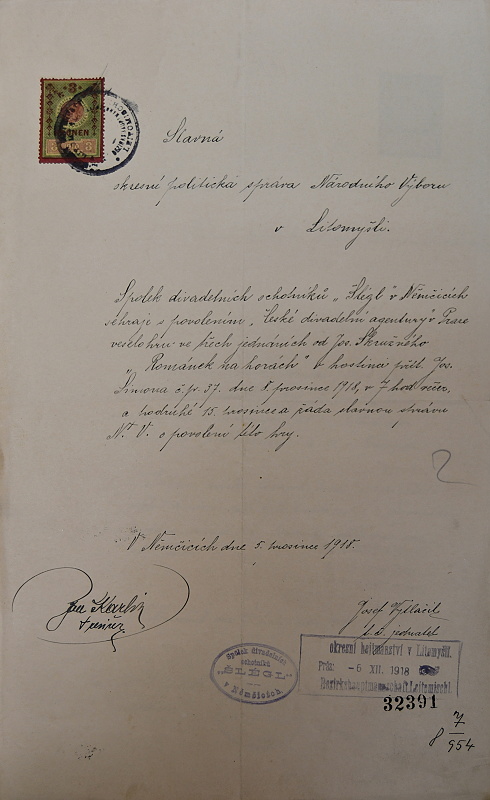 3
3
3
Slavná
okresní politická správa Národního Výboru
v Litomyšli.
Spolek divadelních ochotníků „Šlégl" v Němčicích
sehraje s povolením „České divadelní agentury" v Praze
veselohru ve třech jednáních od Jos. Skružného
„Románek na horách" v hostinci přít. Jos.
Šimona č. p. 37. dne 8. prosince 1918, v 7 hod večer,
a podruhé 15. prosince a žádá slavnou správu
N. V. o povolení této hry.
2
V Němčicích dne 5. prosince 1918.
Jan
Josef Vytlačil
t. č. jednatel
Spolek divadelních
ochotníků
„ŠLÉGL"
v Němčicích.
okresní hejtmanství v Litomyšli.
Präs: -6 XII. 1918
Bezirkshauptmannschaft Leitomischl
32391
8 7/954